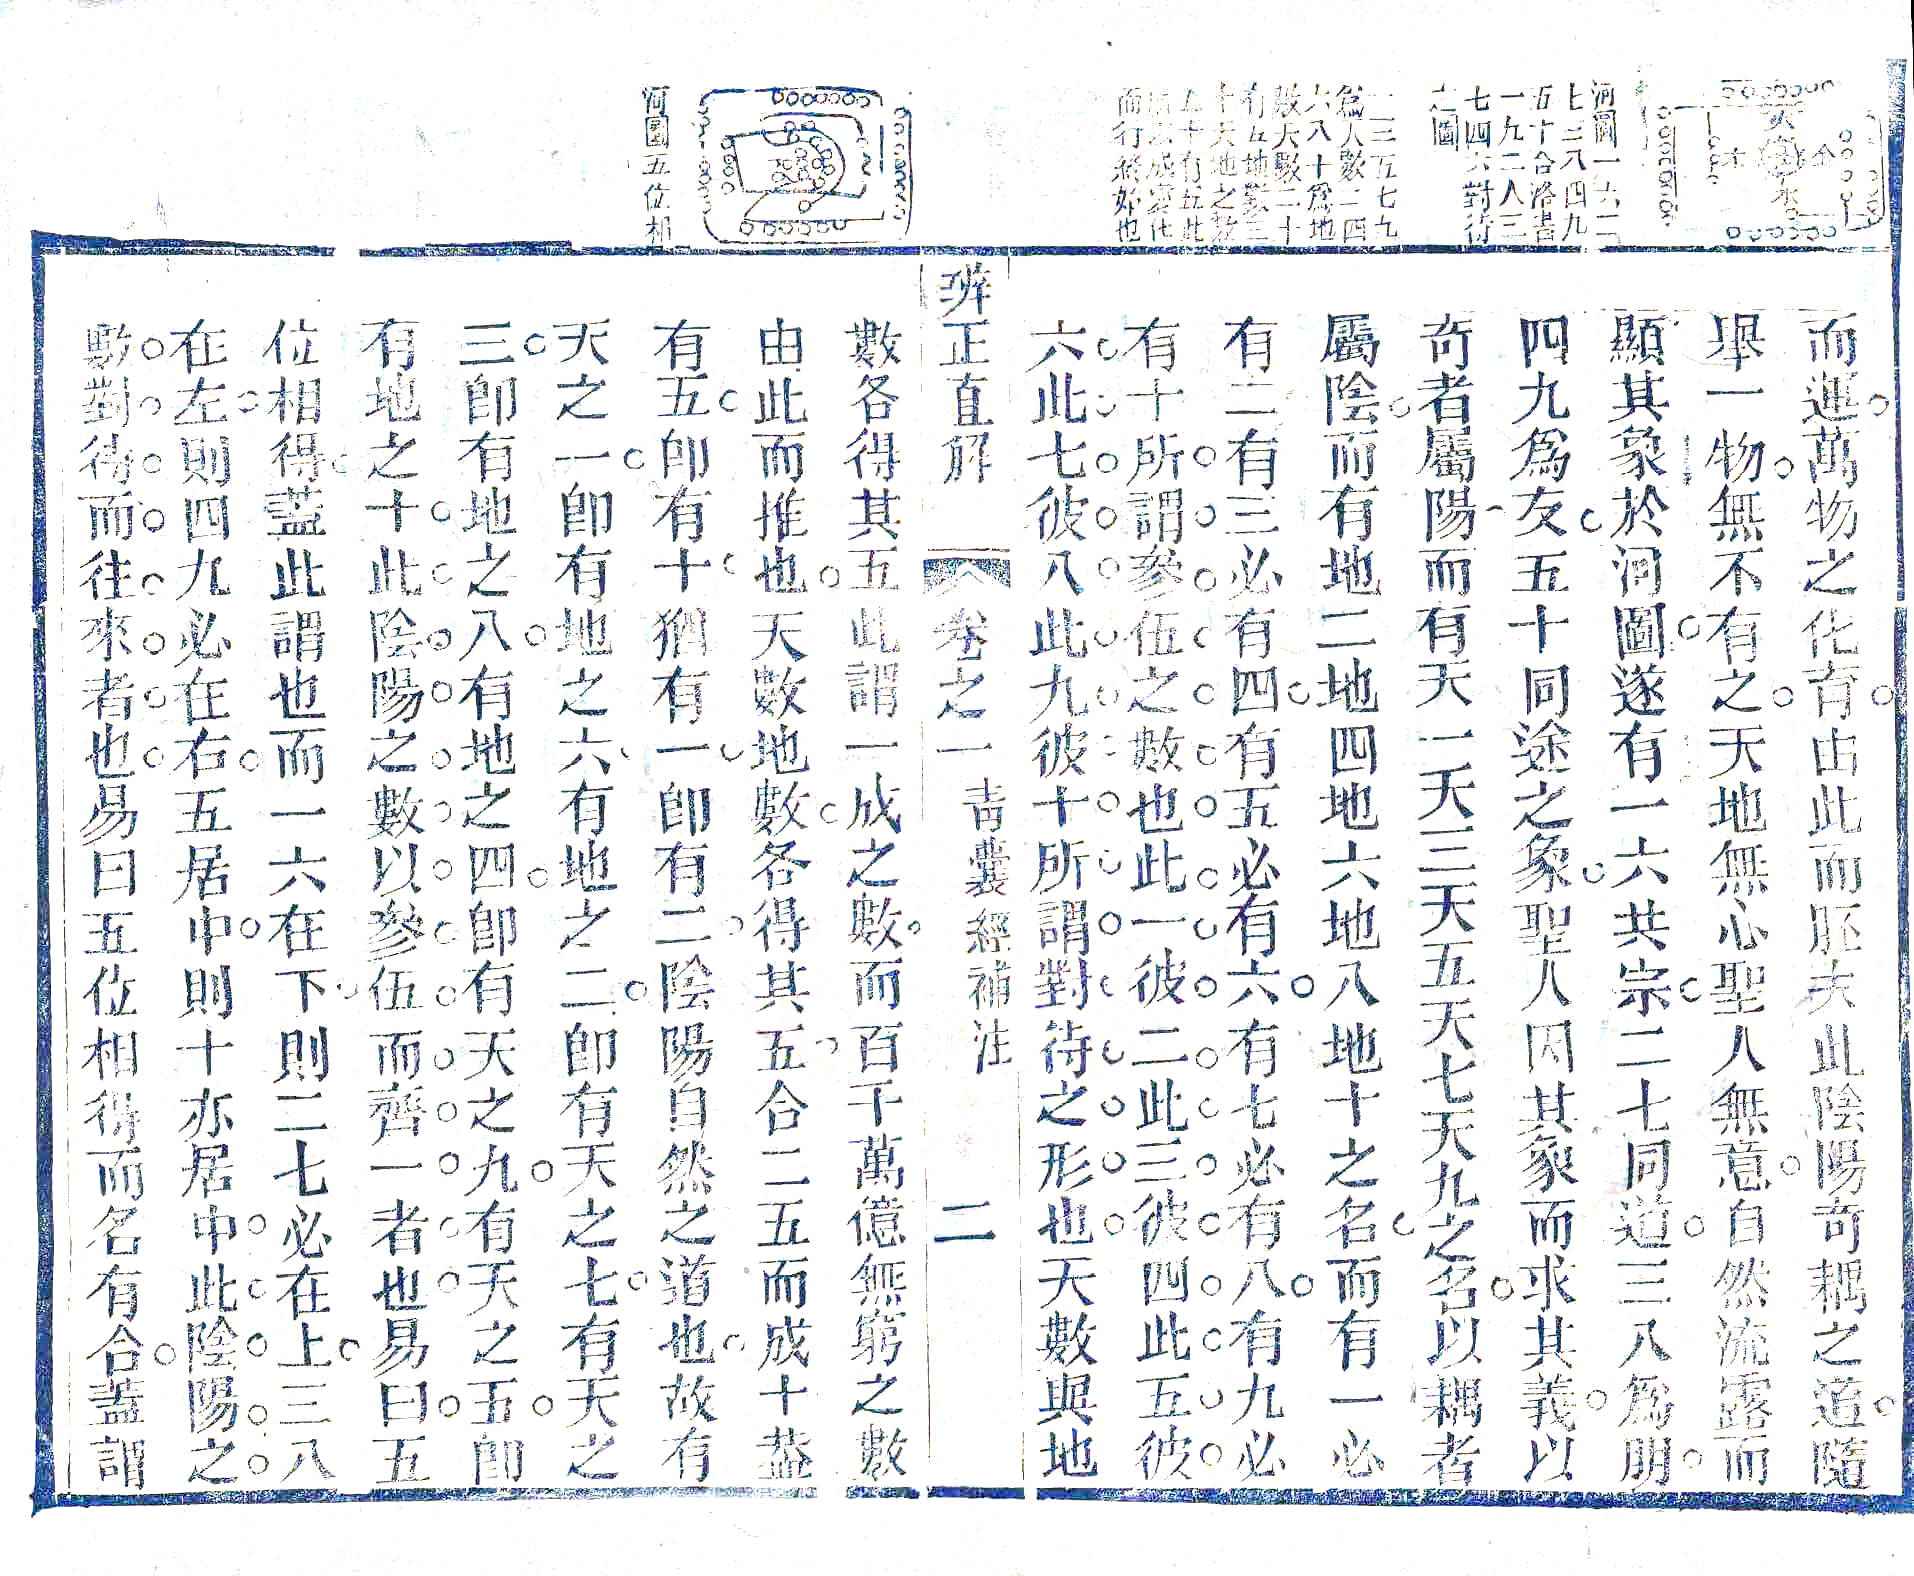 河圖一六二
七三八四九
五十合洛書
一九二八三
七四六對待
之圖
一三五七九
為人數二四
六八十為地
數天數二十
有五地數三
十天地之數
五十有五此
所以成變化
而行終始也
河圖五位相
而運萬物之化育由此而胚夫此陰陽奇耦之道隨
舉一物無不有之天地無心聖人無意自然流露而
顯其象於河圖遂有一六共宗二七同道三八為朋
四九為友五十同途之象聖人因其象而求其義以
奇者屬陽而有天一天三天五天七天九之名以耦者
屬陰而有地二地四地六地八地十之名而有一必
有二有三必有四有五必有六有七必有八有九必
有十所謂參伍之數也此一彼二此三彼四此五彼
六此七彼八此九彼十所謂對待之形也天數與地
辨正直解 卷之一 青囊經補注 二
數各得其五此謂一成之數而百千萬億無窮之數
由此而推也天數地數各得其五合二五而成十蓋
有五卽有十猶有一卽有二陰陽自然之道也故有
天之一卽有地之六有地之二卽有天之七有天之
三卽有地之八有地之四卽有天之九有天之五卽
有地之十此陰陽之數以參伍而齊一者也易曰五
位相得蓋此謂也而一六在下則二七必在上三八
在左則四九必在右五居中則十亦居中此陰陽之
數對待而往來者也易曰五位相得而名有合蓋謂